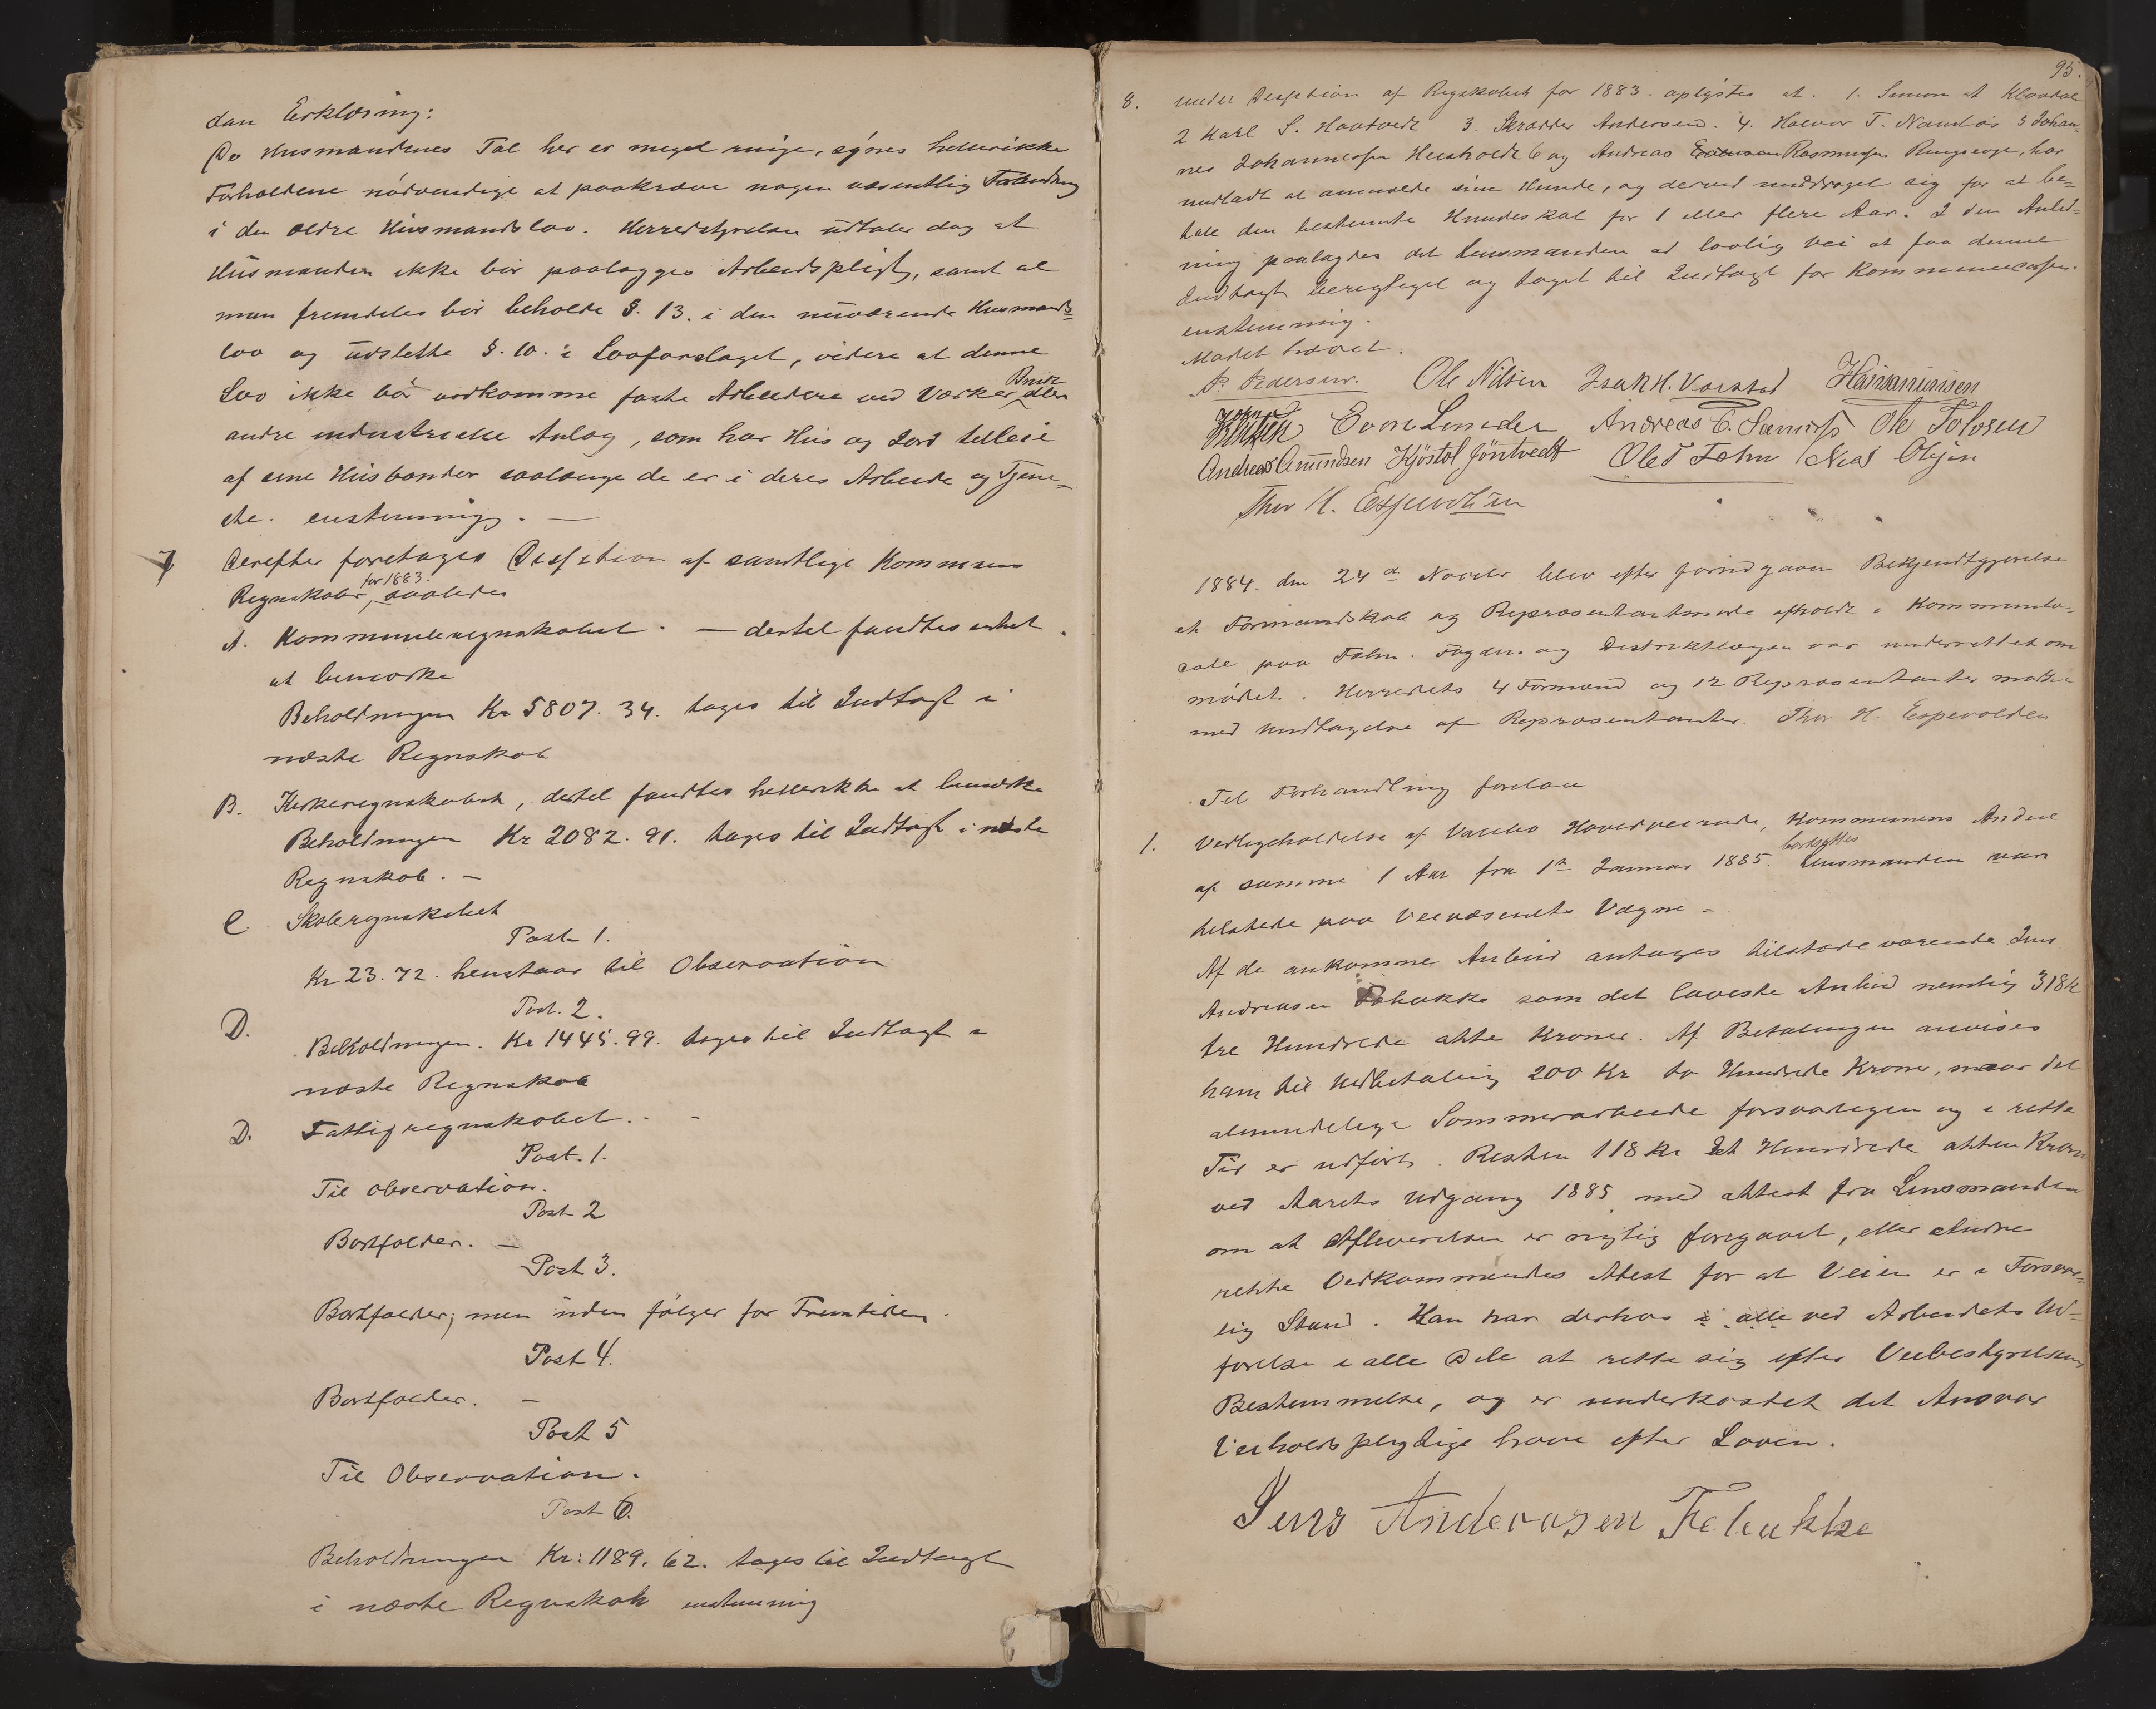 dan Erklæring:
Da Husmændenes Tal her er meget ringe, synes hellerikke
Forholdene nødvendige at paakræve nogen væsentlig Forandring
i den ældre Husmandslov. Herredstyrelsen udtaler dog at
Husmanden ikke bør paalægges Arbeidspligt, samt at
man fremdeles bør beholde §. 13. i den nuværende Husmands=
lov og udslette §. 10. i Lovforslaget, videre at denne
Lov ikke bør vedkomme faste Arbeidere ved Værker, Brug eller
andre industrielle Anlæg, som har Hus og Jord tilleie
af sine Husbonder saalænge de er i deres Arbeide og Tjene=
ste. enstemmig. —
7 Derefter foretages Desision af samtlige Kommunens
Regnskaber, for 1883. saaledes
A. Kommuneregnskabet. — dertil fandtes intet
at bemærke
Beholdningen Kr 5807. 34. tages til Indtægt i
næste Regnskab
B. Kirkeregnskabet, dertil fandtes hellerikke at bemærke
Beholdningen Kr 2082. 91. tages til Indtægt i næste
Regnskab. —
C. Skoleregnskabet
Post 1.
Kr 23. 72. henstaar til Observation
Post. 2.
D. Beholdningen. Kr 1445. 99. tages til Indtægt i
næste Regnskab
D. Fattigregnskabet. -
Post. 1.
Til Observation.
Post 2
Bortfalder. —
Post 3.
Bortfalder; men uden følger for Fremtiden.
Post 4.
Bortfalder. —
Post 5
Til Observation.
Post 6.
Beholdningen Kr: 1189. 62. tages til Indtægt
i næste Regnskab enstemmig
95.
8. under Desision af Regnskabet for 1883. oplystes at. 1. Simon
2 Karl S. 3. Skrædder Andersen. 4. Halvor T. 5 Johan=
nes Johannesen 6 og Andreas Rasmusen har
undladt at anmelde sine Hunde, og derved unddraget sig for at be=
tale den bestemte Hundeskat for 1 eller flere Aar. I den Anled=
ning paalagdes det Lensmanden ad lovlig Vei at faa denne
Indtægt berigtiget og taget til Indtægt for Kommunecassen.
enstemmig.
Mødet hævet.
P. Pedersen. Ole Nilsen Isak H.
Even Andreas E. Ole Tolosen
Andreas Amundsen Kjøstol Jöntvedt Ole T Følm
Thor H. Espevolden
1884. den 24de Novbr blev efter forudgaaen Bekjendtgjørelse
et Formandskab og Repræsentantmøde afholdt i Kommunelo-
cale paa Følm. Fogden og Distriktlægen var underrettet om
mødet. Herredets 4 Formænd og 12 Repræsentanter mødte
med undtagelse af Repræsentanter. Thor H. Espevolden
Til Forhandling forelaa
1. Vedligeholdelse af Hovedveirude, Kommunens Andeel
af samme 1 Aar fra 1ste Januar 1885. bortsattes Lensmanden var
tilstede paa Veivæsenets Vegne -
Af de ankomne Anbud antages tilstedeværende Jens
Andreasen Febakke som det laveste Anbud nemlig 318 k
tre Hundrede atte Kroner. Af Betalingen anvises
ham til Udbetaling 200 Kr to Hundrede Kroner, naar det
almindelige Sommerarbeide forsvarligen og i rette
Tid er udført. Resten 118 Kr Et Hundrede atten Kroner
ved Aarets Udgang 1885, med attest fra Lensmanden
om at Afleverelsen er rigtig foregaaet, eller Andre
rette Vedkommendes Attest for at Veien er i Forsvar=
lig Stand. Han har derhos i alle ved Arbeidets Ud=
førelse i alle Dele at rette sig efter Veibestyrelsens
Bestemmelse, og er underkastet det Ansvar
Veiholdspligtige have efter Loven.
Jens Anderasen Febakke